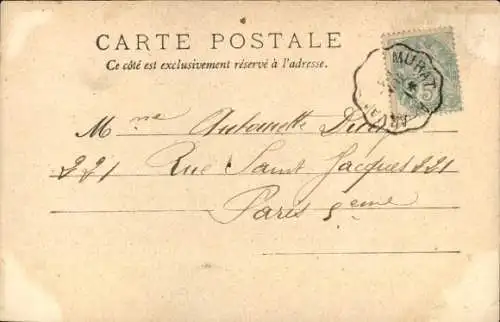 CARTE POSTALE
Ce côté est exclusivement réservé à l'adresse.
MURAT
5
Mme Antoinette
221 Rue Saint Jacques 221
Paris 5eme